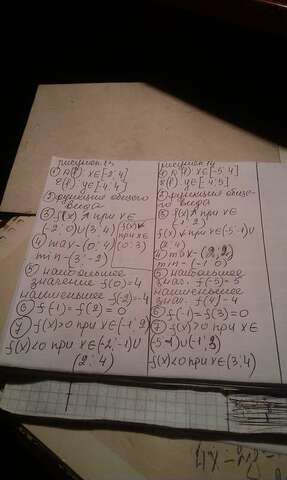 рисунок 13
① D(f) x∈[-2;4]
E(f) y∈[-4;4]
② функция общего
вида
③ f(x)↗ при x∈
(-2;0)∪(3;4)
f(x)↙
при x∈
(0;3)
④ max-(0;4)
min-(3;-2)
⑤ наибольшее
значение f(0)=4
наименьшее
f(-2)=-4
⑥ f(-1)=f(2)=0
⑦ f(x)>0 при x∈(-1;2)
f(x)<0 при x∈(-2;-1)∪
(2;4)
рисунок 14
① D(f) x∈[-5;4]
E(f) y∈[-4;5]
② функция обще-
го вида
③ f(x)↗ при x∈
(-1;2)
f(x)↙ при x∈(-5;-1)∪
(2;4)
④ max-(2;2)
min-(-1;0)
⑤ наибольшее
знач. f(-5)=5
наименьшее
знач. f(4)=-4
⑥ f(-1)=f(3)=0
⑦ f(x)>0 при x∈
(-5;-1)∪(-1;3)
f(x)<0 при x∈(3;4)